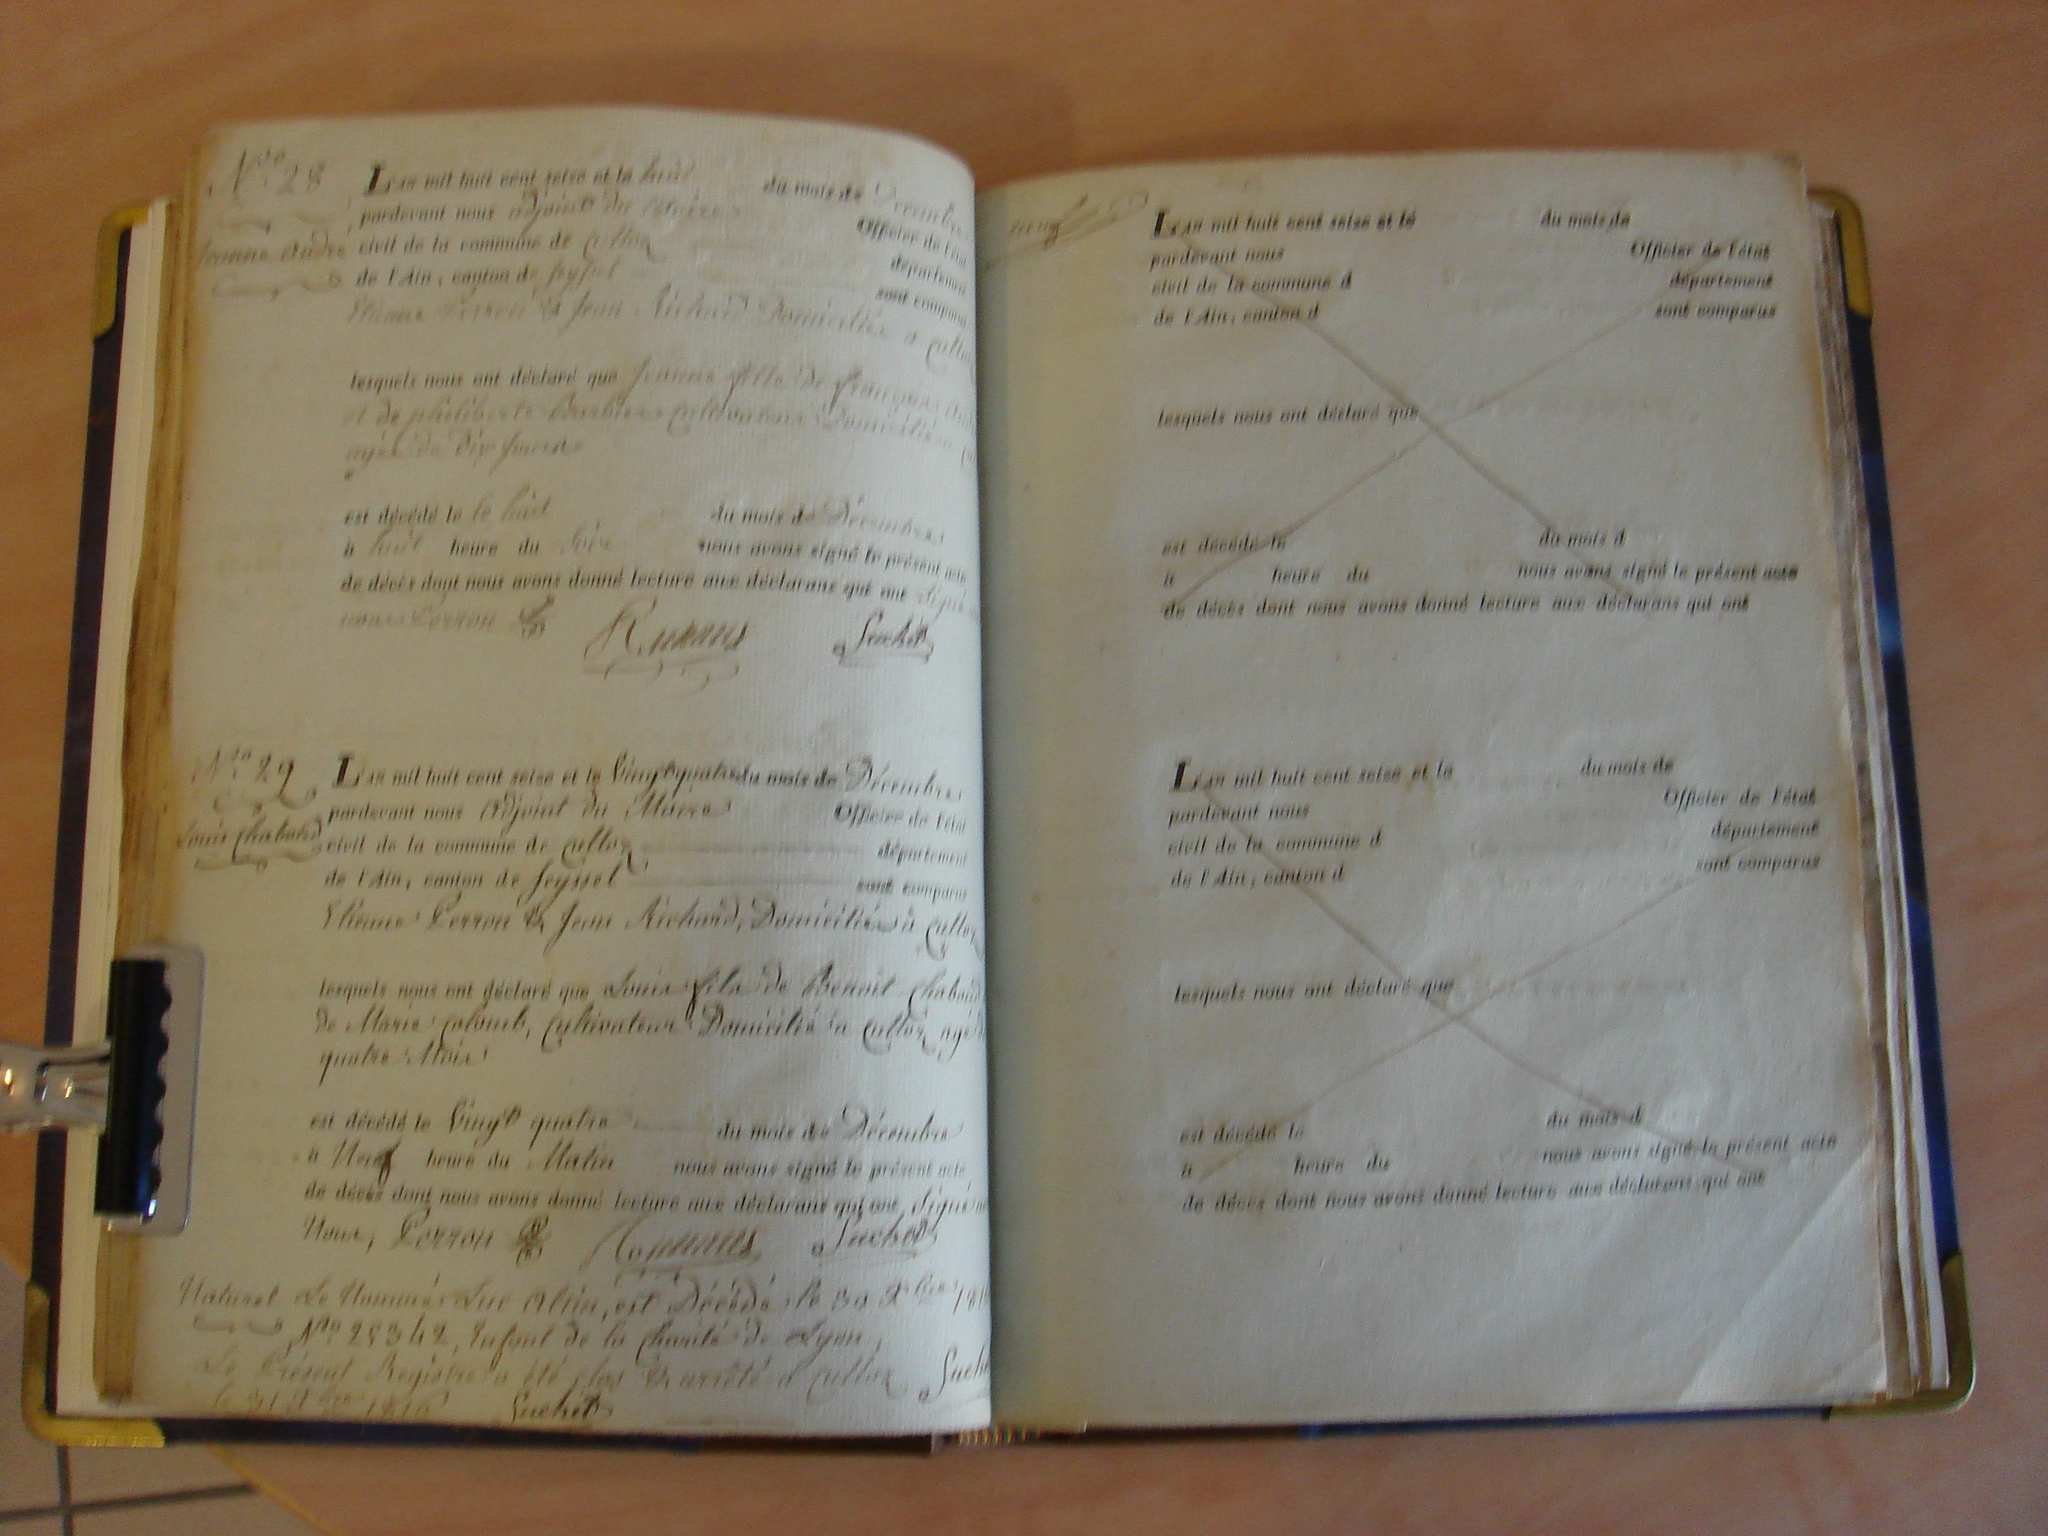 No. 28
L'an mil huit cent seize et le huit du mois de Décembre
pardevant nous adjoint du Officier de l'état
Jeanne André
civil de la commune de Culloz département
de l'Ain, canton de Seyssel sont comparus
Etienne Perron & Jean Richard Domiciliés a Culloz
lesquels nous ont déclaré que Jeanne fille de François
et de philiberte Barbier Cultivateurs Domiciliés
agée de dix jours
est décédé le le huit du mois de Décembre
à huit heure du Soir nous avons signé le présent acte
de décès dont nous avons donné lecture aux déclarans qui ont signé
nous Perron Suchet
No. 29
L'an mil huit cent seize et le Vingt quatre du mois de Décembre
pardevant nous adjoint du Maire Officier de l'état
Louis Chaboud
civil de la commune de Culloz département
de l'Ain, canton de Seyssel sont comparus
Etienne Perron & Jean Richard, Domiciliés à Culloz
lesquels nous ont déclaré que Louis fils de Benoit Chaboud
de Marie Colomb, Cultivateur Domicilié a Culloz, agé
quatre Mois
est décédé le Vingt quatre du mois de Décembre
à Neuf heure du Matin nous avons signé le présent acte
de décès dont nous avons donné lecture aux déclarans qui ont Signé
Nous, Perron Suchet
Naturel Le Nommé Luc est Décédé le 30 Xbre
No. 25342, Enfant de la Charité de Lyon
Le Présent Registre a été clos & arrêté a Culloz Suchet
le 31 Xbre 1816 Suchet
L'an mil huit cent seize et le du mois de
pardevant nous Officier de l'état
civil de la commune d département
de l'Ain, canton d sont comparus
lesquels nous ont déclaré que
est décédé le du mois d
à heure du nous avons signé le présent acte
de décès dont nous avons donné lecture aux déclarans qui ont
L'an mil huit cent seize et le du mois de
pardevant nous Officier de l'état
civil de la commune d département
de l'Ain, canton d sont comparus
lesquels nous ont déclaré que
est décédé le du mois d
à heure du nous avons signé le présent acte
de décès dont nous avons donné lecture aux déclarans qui ont